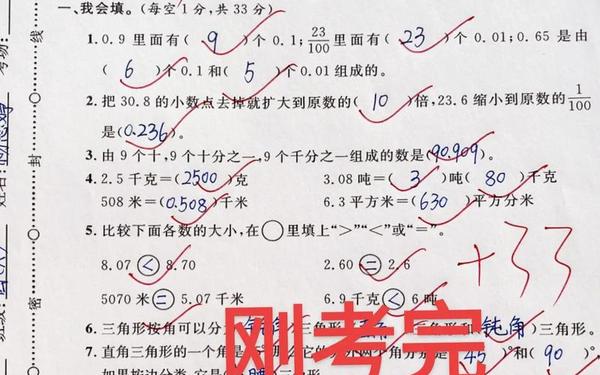 一、我会填。(每空1分,共33分)
1. 0.9里面有(9)个0.1;23/100里面有(23)个0.01;0.65是由
(6)个0.1和(5)个0.01组成的。
2. 把30.8的小数点去掉就扩大到原数的(10)倍,23.6缩小到原数的1/100
是(0.236)。
3. 由9个十,9个十分之一,9个千分之一组成的数是(90.909)。
4. 2.5千克=(2500)克 3.08吨=(3)吨(80)千克
508米=(0.508)千米 6.3平方米=(630)平方分米
5. 比较下面各数的大小,在○里填上“>”“<”或“=”。
8.07<8.70 2.60=2.6
5070米=5.07千米 6.9千克<6吨
+33
6. 三角形按角可以分 三角形 三角形和(钝角)三角形。
7. 直角三角形的一个角是 那么它的另外两个角分别是(45)°和(90)°,
如果按边分类,它是 腰 三角形
刚考完
线
封
密
考场:
姓名:
班级: